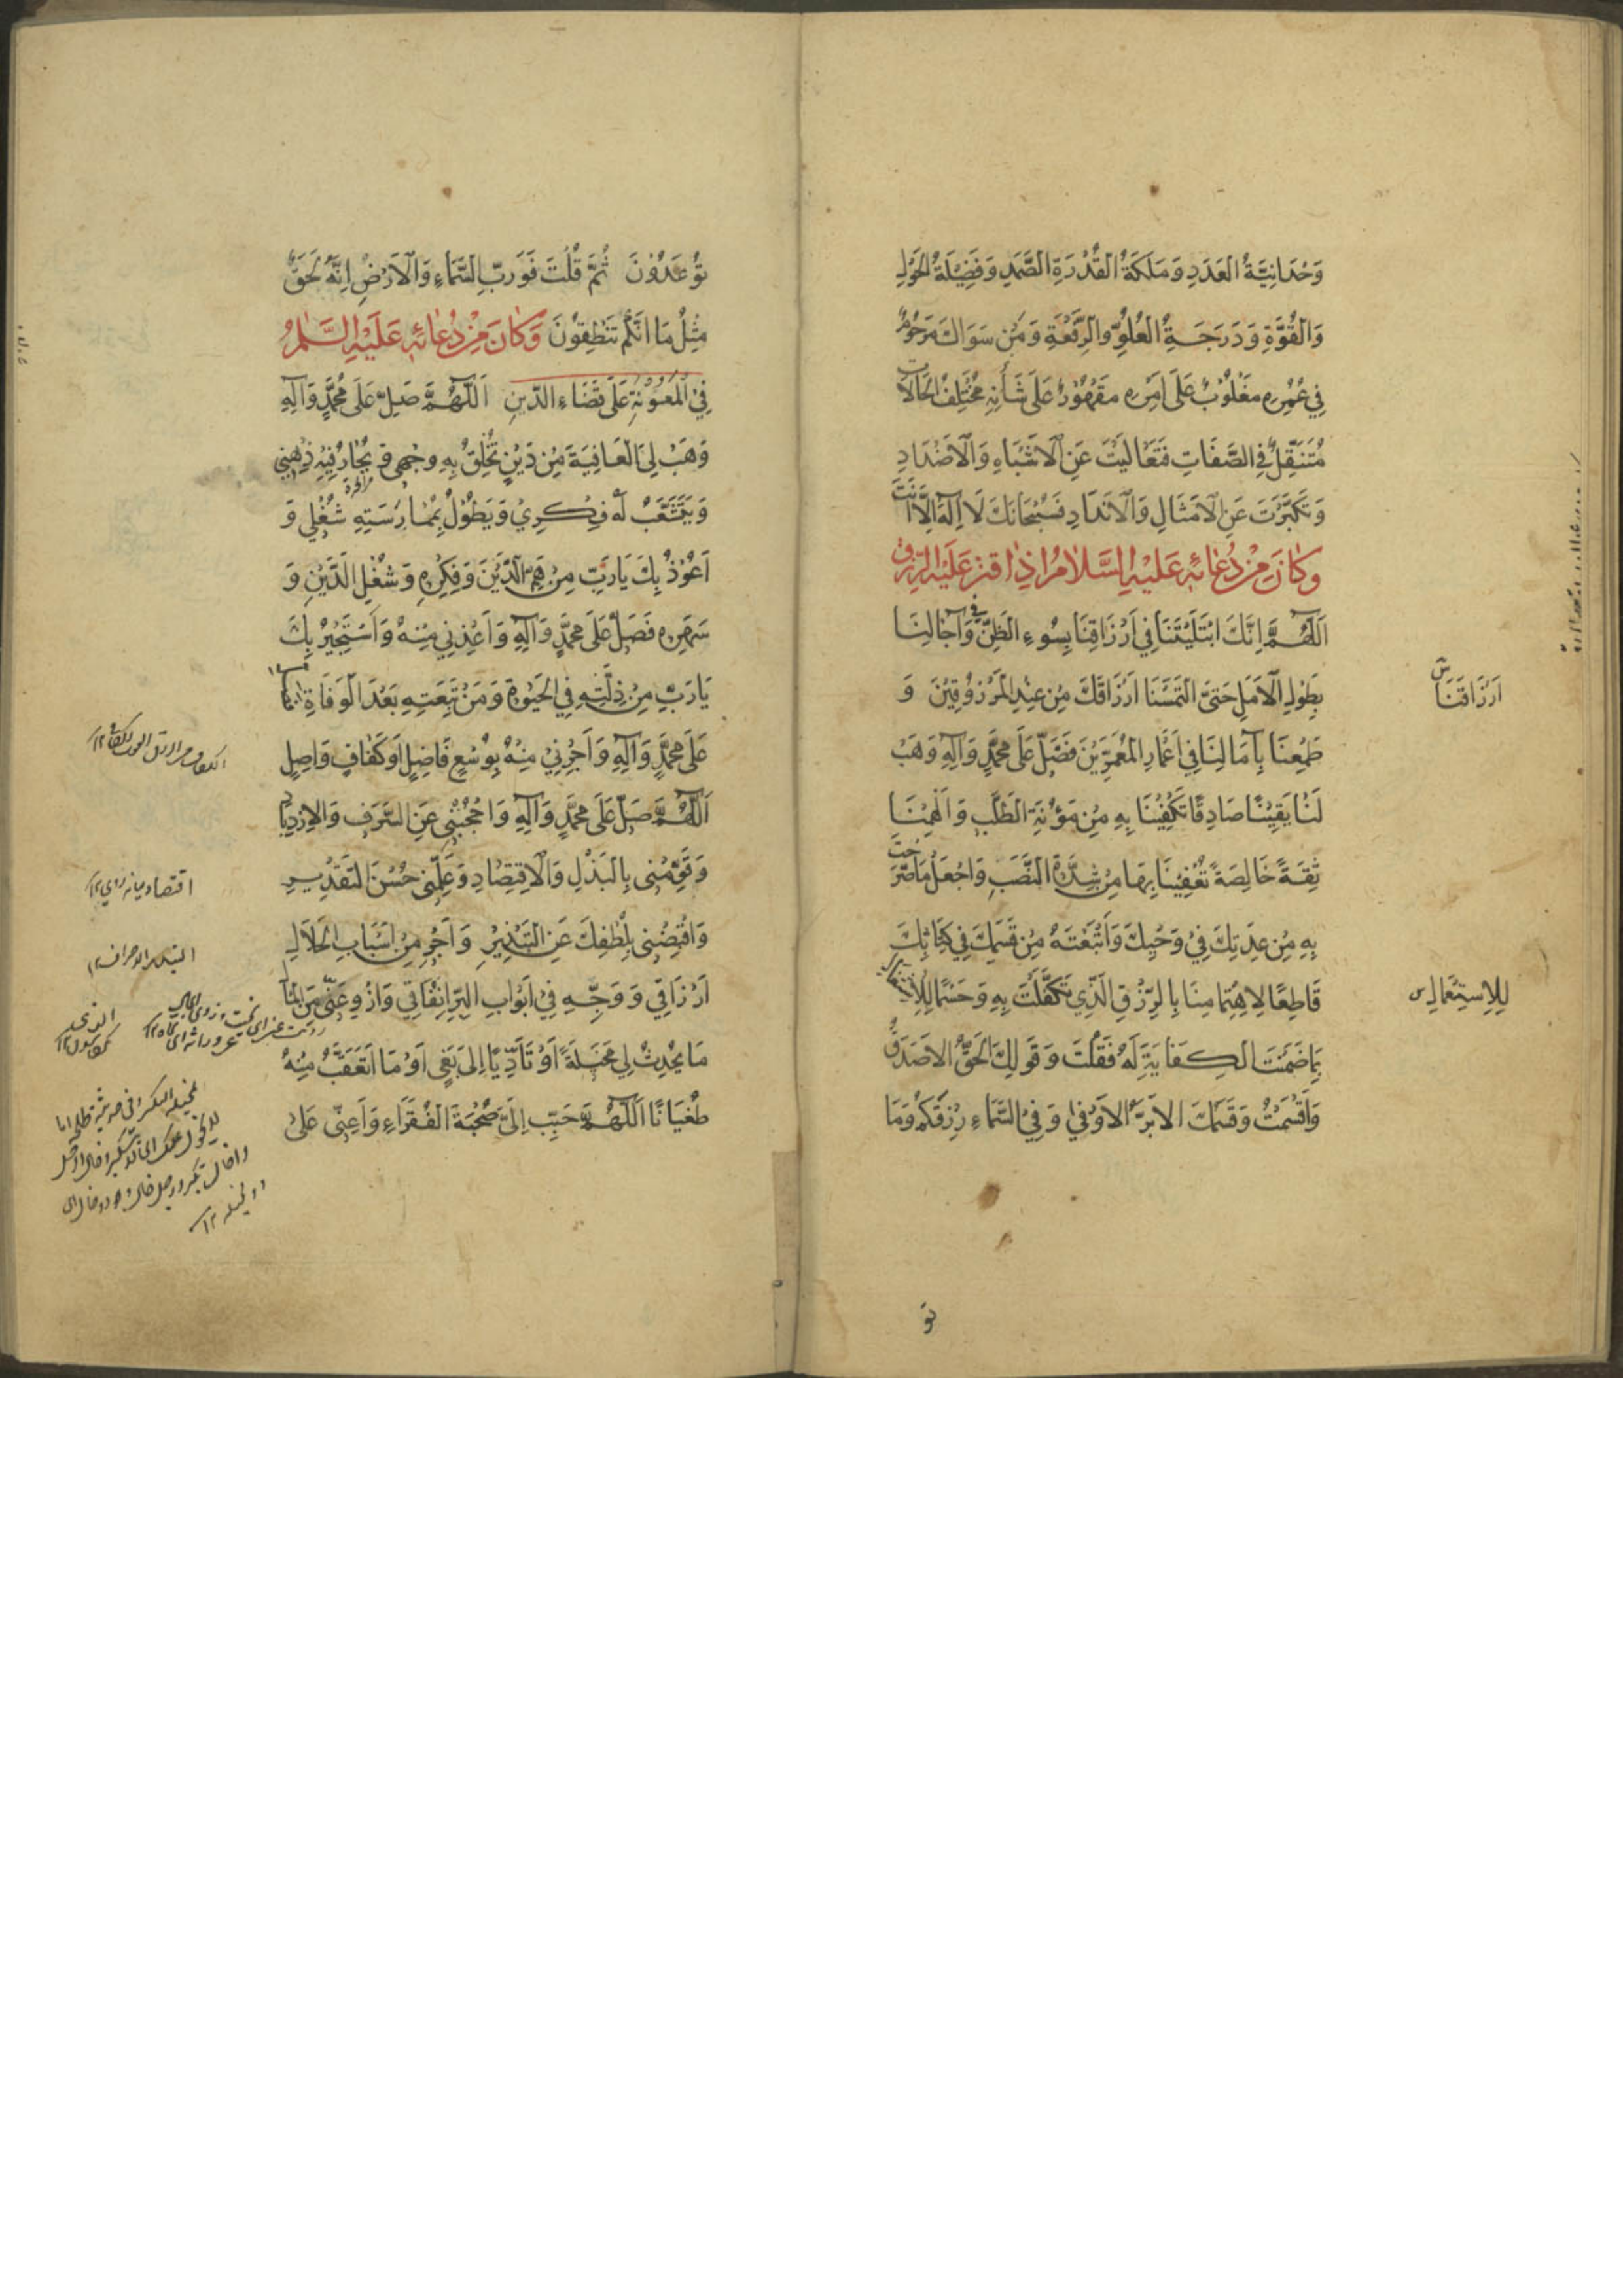 وَحْدَانِيَّةُ الْعَدَدِ وَمَلَكَةُ الْقُدْرَةِ الصَّمَدِ وَفَضِيلَةُ الْحَوْلِ
وَالْقُوَّةِ وَدَرَجَةُ الْعُلُوِّ وَالرِّفْعَةِ وَمَنْ سِوَاكَ مَرْحُومٌ
فِي عُمْرِهِ مَغْلُوبٌ عَلَى أَمْرِهِ مَقْهُورٌ عَلَى شَأْنِهِ مُخْتَلِفُ الْحَالَاتِ
مُتَنَقِّلٌ فِي الصِّفَاتِ فَتَعَالَيْتَ عَنِ الْأَشْبَاهِ وَالْأَضْدَادِ
وَتَكَبَّرْتَ عَنِ الْأَمْثَالِ وَالْأَنْدَادِ فَسُبْحَانَكَ لَا إِلَهَ إِلَّا أَنْتَ
وَكَانَ مِنْ دُعَائِهِ عَلَيْهِ السَّلَامُ إِذَا قُتِرَ عَلَيْهِ الرِّزْقُ
اَللَّهُمَّ إِنَّكَ ابْتَلَيْتَنَا فِي أَرْزَاقِنَا بِسُوءِ الظَّنِّ وَفِي آجَالِنَا
بِطُولِ الْأَمَلِ حَتَّى الْتَمَسْنَا أَرْزَاقَكَ مِنْ عِنْدِ الْمَرْزُوقِينَ وَ
أَرْزَاقَنَا س
طَمِعْنَا بِآمَالِنَا فِي أَعْمَارِ الْمُعَمَّرِينَ فَصَلِّ عَلَى مُحَمَّدٍ وَآلِهِ وَهَبْ
لَنَا يَقِينًا صَادِقًا تَكْفِينَا بِهِ مِنْ مَؤُنَةِ الطَّلَبِ وَأَلْهِمْنَا
ثِقَةً خَالِصَةً تُعْفِينَا بِهَا مِنْ شِدَّةِ النَّصَبِ وَاجْعَلْ مَا صَرَّحْتَ
بِهِ مِنْ عِدَتِكَ فِي وَحْيِكَ وَأَتْبَعْتَهُ مِنْ قَسَمِكَ فِي كِتَابِكَ
قَاطِعًا لِاهْتِمَامِنَا بِالرِّزْقِ الَّذِي تَكَفَّلْتَ بِهِ وَحَسْمًا لِلْاِشْتِغَالِ
لِلْاِسْتِعْمَالِ س
بِمَا ضَمِنْتَ الْكِفَايَةَ لَهُ فَقُلْتَ وَقَوْلُكَ الْحَقُّ الْأَصْدَقُ
وَأَقْسَمْتَ وَقَسَمُكَ الْأَبَرُّ الْأَوْفَى وَفِي السَّمَاءِ رِزْقُكُمْ وَمَا
تو
تُوعَدُونَ ثُمَّ قُلْتَ فَوَرَبِّ السَّمَاءِ وَالْأَرْضِ إِنَّهُ لَحَقٌّ
مِثْلَ مَا أَنَّكُمْ تَنْطِقُونَ وَكَانَ مِنْ دُعَائِهِ عَلَيْهِ السَّلَامُ
فِي الْمَعُونَةِ عَلَى قَضَاءِ الدَّيْنِ اَللَّهُمَّ صَلِّ عَلَى مُحَمَّدٍ وَآلِهِ
وَهَبْ لِيَ الْعَافِيَةَ مِنْ دَيْنٍ تُخْلِقُ بِهِ وَجْهِي وَيَحَارُ فِيهِ ذِهْنِي
وَيَتَشَعَّبُ لَهُ فِكْرِي وَيَطُولُ بِمُمَارَسَتِهِ شُغْلِي وَ
أَعُوذُ بِكَ يَا رَبِّ مِنْ هَمِّ الدَّيْنِ وَفِكْرِهِ وَشُغْلِ الدَّيْنِ وَ
سَهَرِهِ فَصَلِّ عَلَى مُحَمَّدٍ وَآلِهِ وَأَعِذْنِي مِنْهُ وَأَسْتَجِيرُ بِكَ
يَا رَبِّ مِنْ ذِلَّتِهِ فِي الْحَيٰوةِ وَمِنْ تَبِعَتِهِ بَعْدَ الْوَفَاةِ
عَلَى مُحَمَّدٍ وَآلِهِ وَأَجِرْنِي مِنْهُ بِوُسْعٍ فَاضِلٍ أَوْ كَفَافٍ وَاصِلٍ
اَللَّهُمَّ صَلِّ عَلَى مُحَمَّدٍ وَآلِهِ وَاحْجُبْنِي عَنِ السَّرَفِ وَالْاِزْدِيَادِ
وَقَوِّمْنِي بِالْبَذْلِ وَالْاِقْتِصَادِ وَعَلِّمْنِي حُسْنَ التَّقْدِيرِ
اقتصاد ميانه روي ١٢
وَاقْبِضْنِي بِلُطْفِكَ عَنِ التَّبْذِيرِ وَأَجْرِ مِنْ أَسْبَابِ الْحَلَالِ
أَرْزَاقِي وَوَجِّهْ فِي أَبْوَابِ الْبِرِّ إِنْفَاقِي وَازْوِ عَنِّي مِنَ الْمَالِ
مَا يُحْدِثُ لِي مَخِيلَةً أَوْ تَأَدِّيًا إِلَى بَغْيٍ أَوْ مَا أَتَعَقَّبُ مِنْهُ
طُغْيَانًا اَللَّهُمَّ حَبِّبْ إِلَيَّ صُحْبَةَ الْفُقَرَاءِ وَأَعِنِّي عَلَى